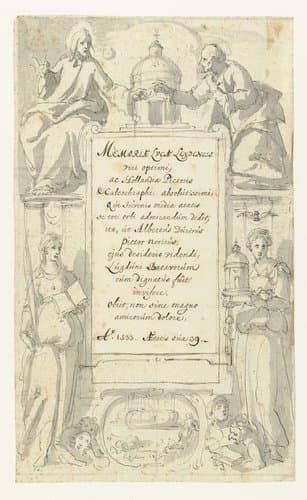 MEMORIÆ LVCÆ LEYDENSIS
viri optimi,
ac Hollandiæ Pictoris
& Calcographi absolutissimi,
Qui Iuvenis mediæ ætatis
se toti orbi admirandum dedit,
ita, ut Albertus Durerus
pictor noricus,
ejus desiderio videndi,
Lugduni Batavorum
eum dignatus fuit
invisere.
obijt, non sine magno
amicorum dolore,
A.º 1533. Ætatis suæ 39.